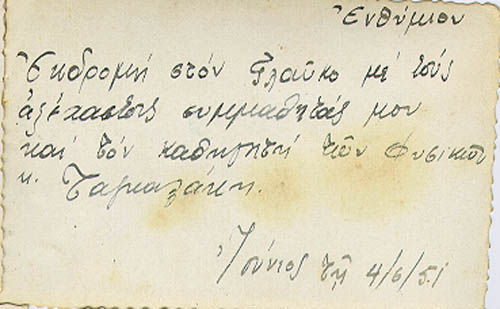 Ἐνθύμιον
Ἐκδρομή στόν Γλαῦκο μέ τούς
ἀλέχαστους συμμαθητάς μου
καί τόν καθηγητή τῶν Φυσικῶν
κ. Ταγκαλάκη.
Ἰούνιος τῇ 4/6/51